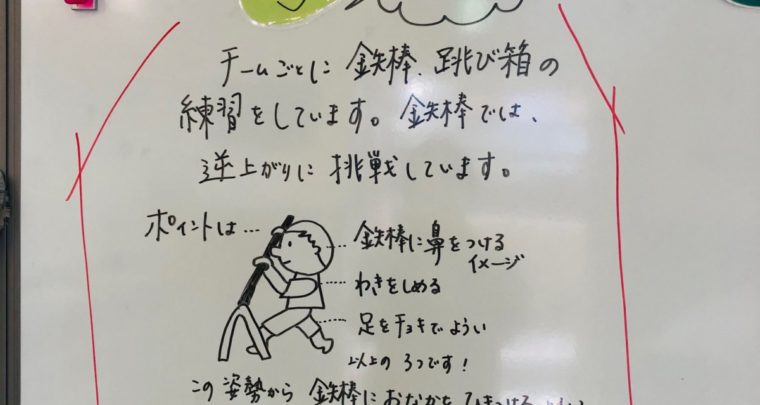 チームごとに 鉄棒、跳び箱の
練習をしています。鉄棒では、
逆上がりに 挑戦しています。
ポイントは…
鉄棒に鼻をつける
イメージ
わきをしめる
足をチョキでようい
以上の3つです!
この姿勢から 鉄棒に おなかを ひきつける